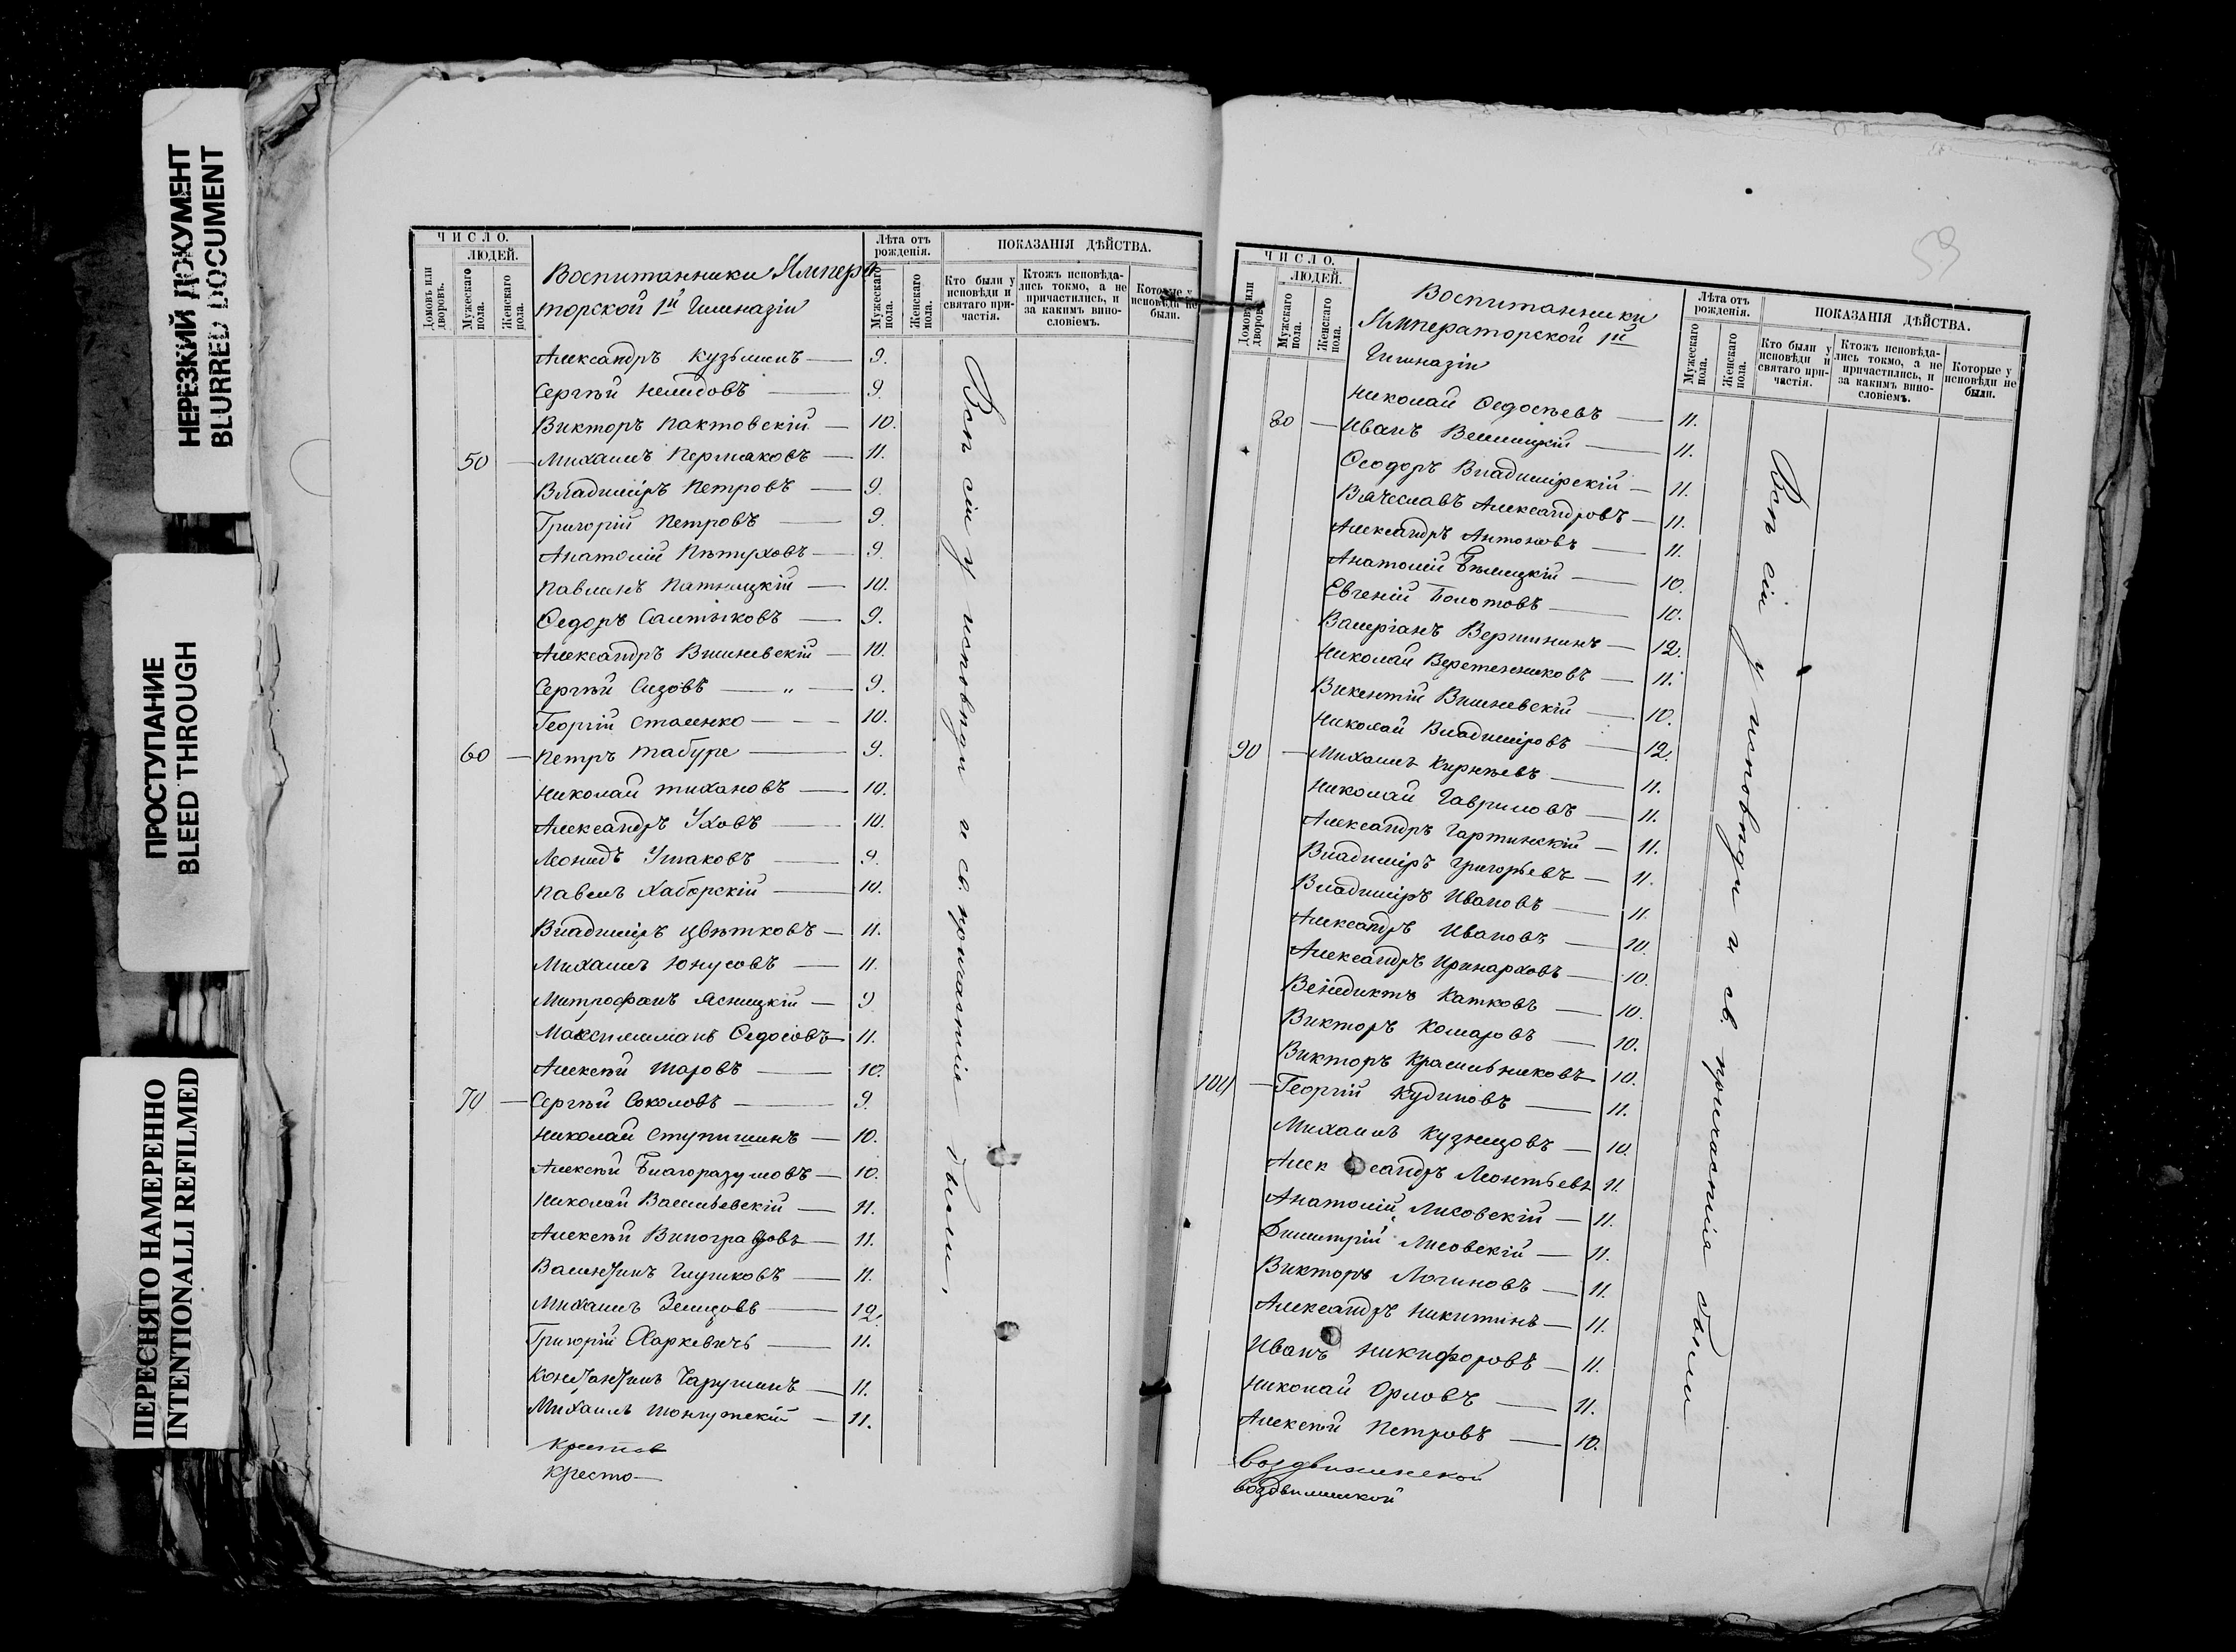 НЕРЕЗКИЙ ДОКУМЕНТ
BLURRED DOCUMENT
ПРОСТУПАНИЕ
BLEED THROUGH
ПЕРЕСНЯТО НАМЕРЕННО
INTENTIONALLI REFILMED
ЧИСЛО.
ЛЮДЕЙ.
Домовъ или дворовъ.
Мужескаго пола.
Женскаго пола.
Воспитанники Импера
торской 1й Гимназіи
Лѣта отъ рожденія.
Мужескаго пола.
Женскаго пола.
ПОКАЗАНІЯ ДѢЙСТВА.
Кто были у исповѣди и святаго при-частія.
Ктожъ исповѣда-лись токмо, а не причастились, и за какимъ вино-словіемъ.
Которые у исповѣди не были.
Александръ Кузьминъ — 9.
Сергѣй Нелидовъ — 9.
Викторъ Пактовскій — 10.
50 — Михаилъ Пермяковъ — 11.
Владиміръ Петровъ — 9.
Григорій Петровъ — 9.
Анатолій Пѣтуховъ — 9.
Павлинъ Патницкій — 10.
Ѳедоръ Салтыковъ — 9.
Александръ Вишневскій — 10.
Сергѣй Сизовъ — „ — 9.
Георгій Сталенко — 10.
60 — Петръ Табуре — 9.
Николай Тихановъ — 10.
Александръ Уховъ — 10.
Леонидъ Ушаковъ — 9.
Павелъ Хаборскій — 10.
Владиміръ Цвѣтковъ — 11.
Михаилъ Юнусовъ — 11.
Митрофанъ Ясницкій — 9
Максимиліанъ Ѳедосѣевъ 11.
Алексѣй Шаровъ — 10.
70 — Сергѣй Соколовъ — 9.
Николай Ступишинъ — 10.
Алексѣй Благоразумовъ — 10.
Николай Васильевскій — 11.
Алексѣй Виноградовъ — 11.
Валентинъ Глушковъ — 11.
Михаилъ Земцовъ — 12.
Григорій Харкевичъ — 11.
Константинъ Чарушинъ — 11.
Михаилъ — 11.
Всѣ сіи у исповѣди и св. причастія были.
Кресто
Кресто—
59
ЧИСЛО.
ЛЮДЕЙ.
Домовъ или дворовъ.
Мужескаго пола.
Женскаго пола.
Воспитанники
Императорской 1й
Гимназіи
Лѣта отъ рожденія.
Мужескаго пола.
Женскаго пола.
ПОКАЗАНІЯ ДѢЙСТВА.
Кто были у исповѣди и святаго при-частія.
Ктожъ исповѣда-лись токмо, а не причастились, и за какимъ вино-словіемъ.
Которые у исповѣди не были.
Николай Ѳедосѣевъ — 11.
80 — Иванъ Велицкій — 11.
Ѳеодоръ Владимірскій — 11.
Вячеславъ Александровъ — 11.
Александръ Антоновъ — 11.
Анатолій Бѣлицкій — 10.
Евгеній Болотовъ — 10.
Валеріанъ Вершининъ — 12.
Николай Веретенниковъ — 11.
Викентій Вишневскій — 10.
Николай Владиміровъ — 12.
90 — Михаилъ Кирѣевъ — 11.
Николай Гавриловъ — 11.
Александръ Гартинскій — 11.
Владиміръ Григорьевъ — 11.
Владиміръ Ивановъ — 11.
Александръ Ивановъ — 10.
Александръ Иринарховъ — 10.
Венедиктъ Катковъ — 10.
Викторъ Комаровъ — 10.
Викторъ Красильниковъ 10.
100 — Георгій Кудиновъ — 11.
Михаилъ Кузнецовъ — 10.
Александръ Леонтьевъ 11.
Анатолій Лисовскій — 11.
Димитрій Лисовскій — 11.
Викторъ Логиновъ — 11.
Александръ Никитинъ — 11.
Иванъ Никифоровъ — 11.
Николай Орловъ — 11.
Алексѣй Петровъ — 10.
Всѣ сіи у исповѣди и св. причастія были
Воздвиженской
воздвиженской